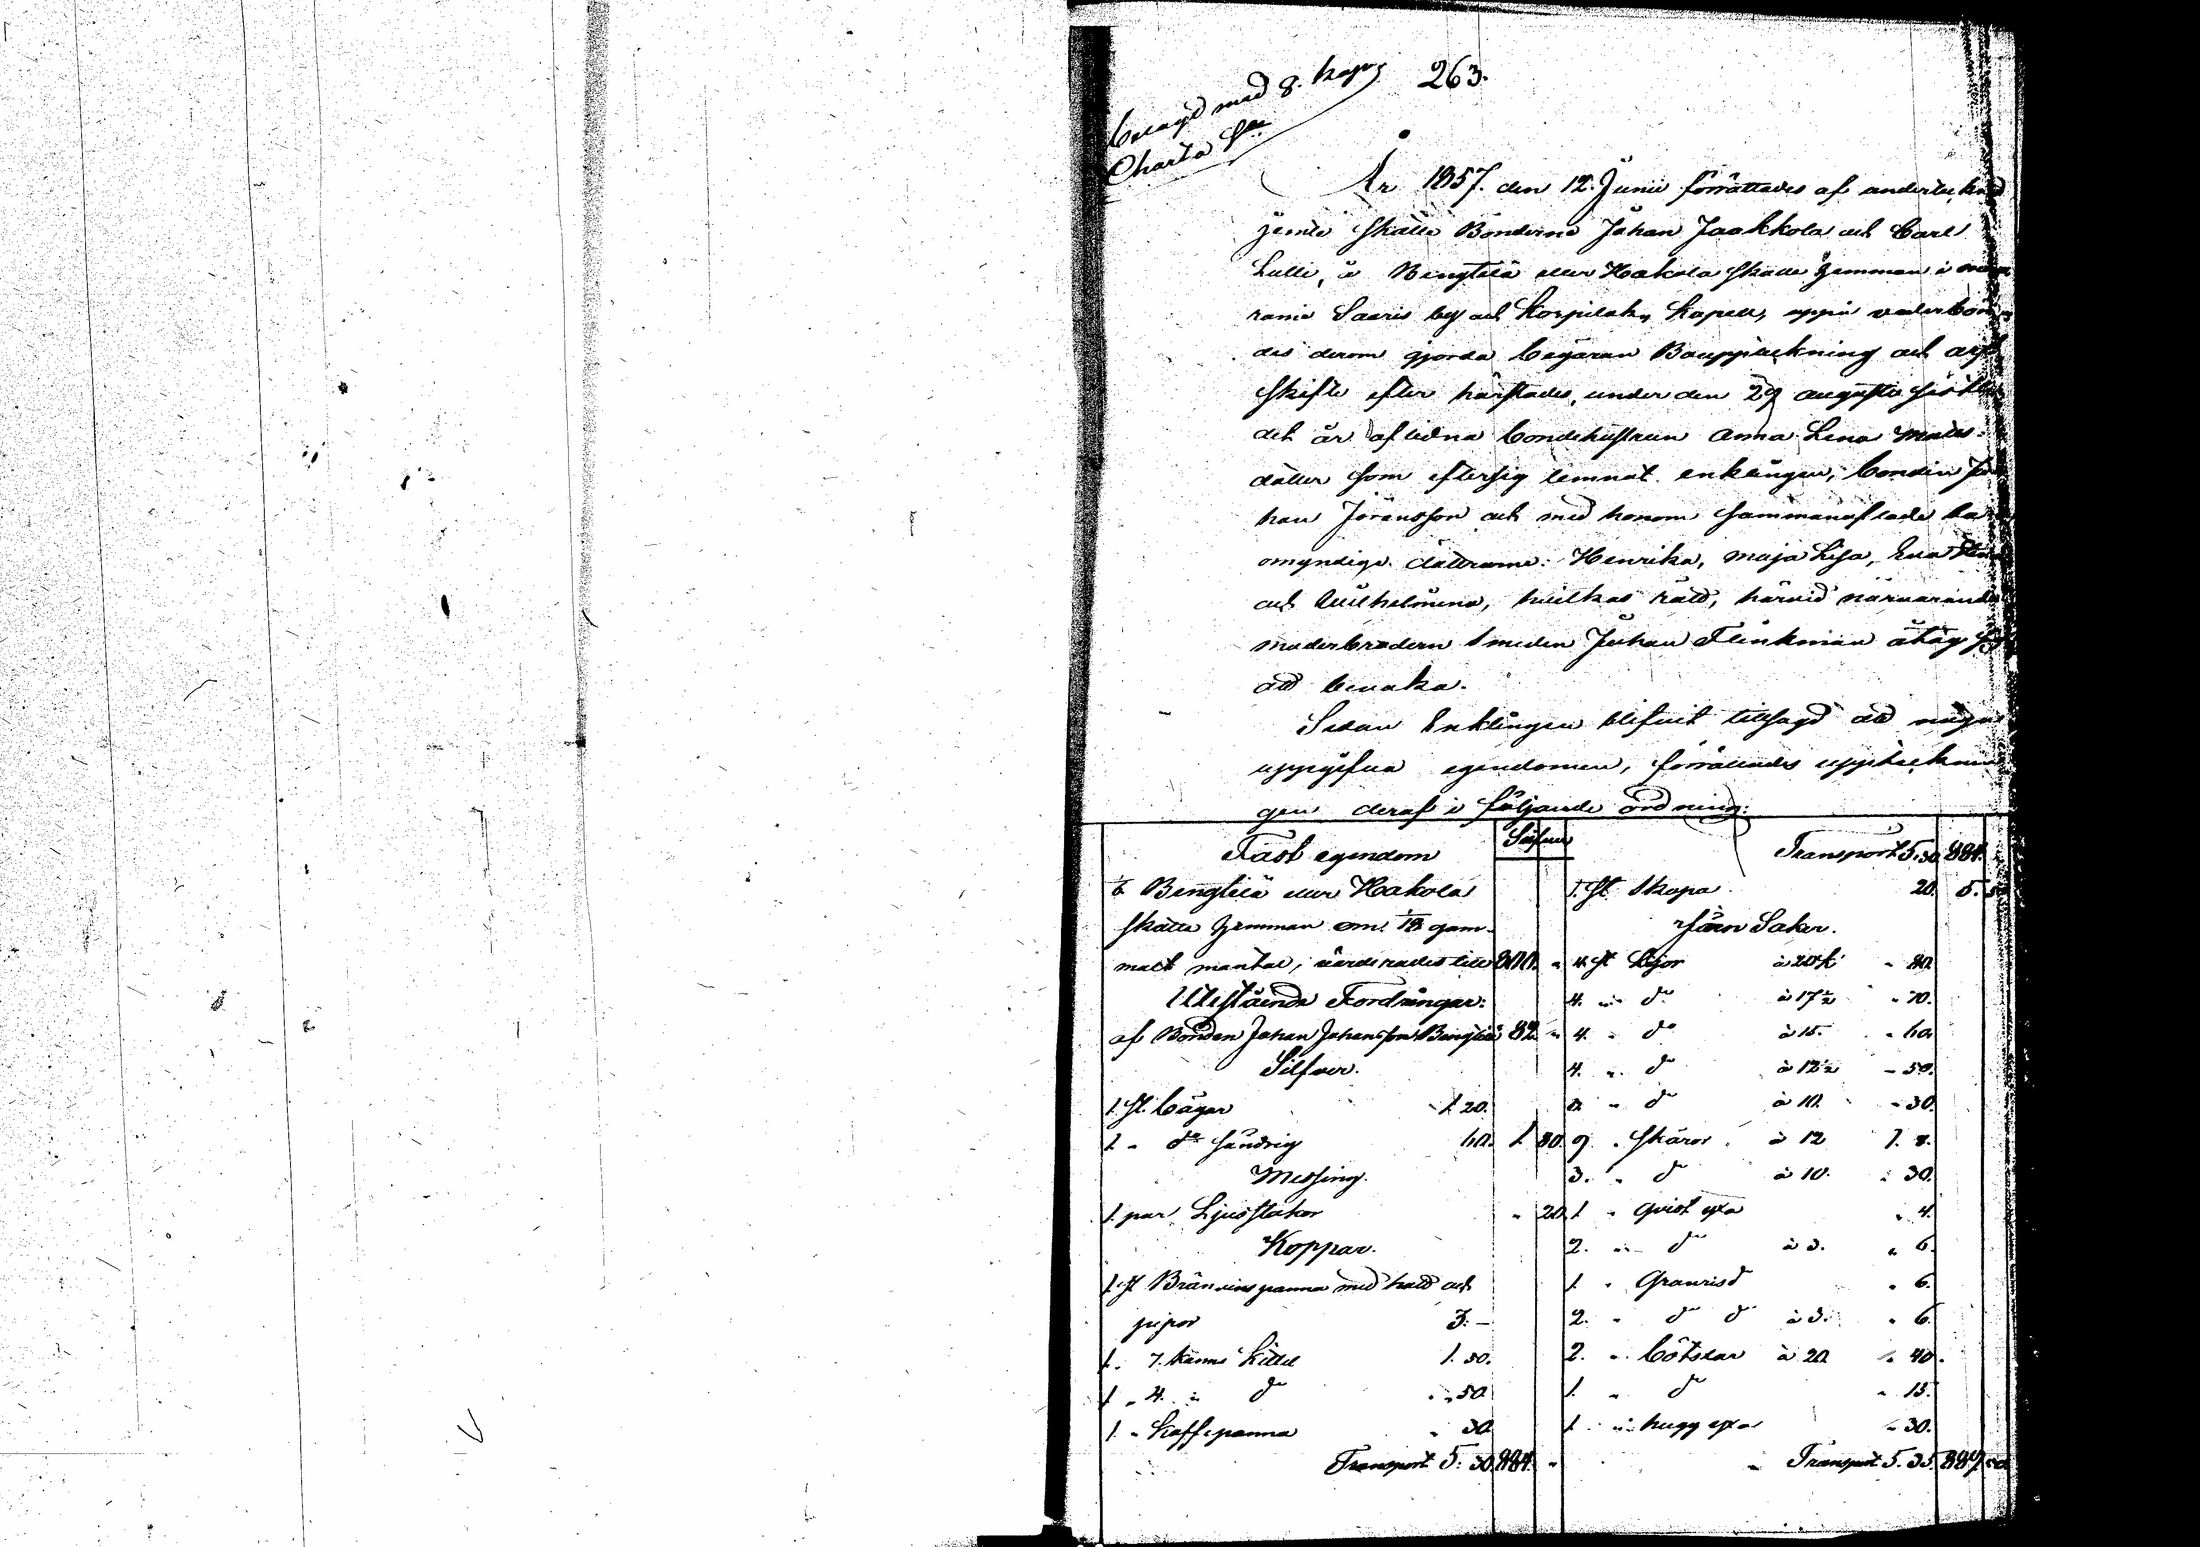 belagd med 8. kop?
Charta S.
263.
År 1857. den 12. Junii förrättades af undertecknad
jemte Skatte Bönderne Johan Jaakkola och Carl
Lulli, å Bengtilä eller Hakola skatte hemman i
Saaris by och Korpilaks Kapell, uppå vederbön-
des derom gjorda begäran Bouppteckning och arf-
skifte efter härstädes, under den 29 augusti sist
det år aflidna bondehustrun Anna Lena Mats-
dotter som eftersig lemnat enklingen, bonden Jo
han Jöransson och med honom sammanaflade
omyndiga döttrarne: Henrika, Maja Lisa, Eva
och Wilhelmina, hvilkas rätt, härvid närvarande
moderbrodern Smeden Johan Flinkman åtog sig
att bevaka.
Sedan Enklingen blifvit tillsagd att
uppgifva egendomen, förrättades upptecknin
gen deraf i följande ordning:
Fast egendom Silfver
1/6 Bengtilä eller Hakola
skatte hemman om 1/18 gam-
malt mantal, värderades till 800. "
Utestående Fordringar:
af Bonden Johan Johansson Bengtilä 82. "
Silfver.
1. st. bägar 1. 20.
1. " do sändrig 60. 1. 80.
Messing.
1. par Ljusstakar " 20.
Koppar.
1. st Bränvins panna med hatt och
pipor 3. –
1. " 7. kanns kittel 1. 50.
1 " 4. " do " 50.
1. " Kaffepanna " 30.
Transport 5. 30. 884. "
Transport 5. 30. 884.
1. st skopa 20. 5. 50
Järn Saker.
4. st Lijor à 20 k " 80.
4. " do à 17 1/2 " 70.
4. " do à 15. " 60.
4. " do à 12 1/2 " 50.
3. " do à 10. " 30.
9. " Skäror à 12 1. 8.
3. " do à 10. " 30.
1 " qvist yxa " 4.
2. " do à 3. " 6.
1 " Granrisd " 6.
2. " do do à 3. " 6.
2. " Bötslar à 20 " 40.
1. " do " 15.
1 " hugg yxa " 30.
Transport 5. 35. 889. 50